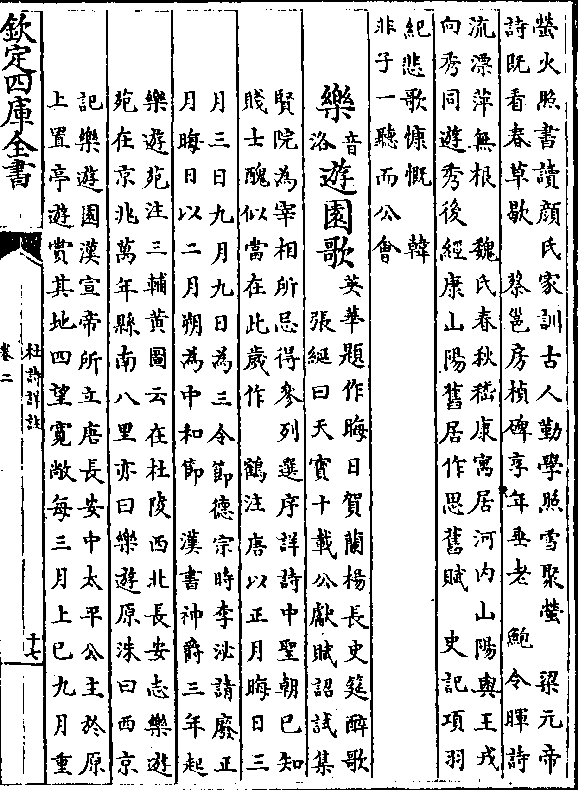 螢火照書讀顔氏家訓古人勤學照雪聚螢　梁元帝
詩既看春草歇　蔡邕房楨碑享年垂老　鮑令暉詩
流漂萍無根　魏氏春秋嵇康寓居河内山陽與王戎
向秀同遊秀後經康山陽舊居作思舊賦　史記項羽
紀悲歌慷慨　韓
非子一聽而公會
樂音洛遊園歌英華題作晦日賀蘭楊長史筵醉歌
張綖曰天寳十載公獻賦詔試集
賢院為宰相所忌得參列選序詳詩中聖朝已知
賤士醜似當在此歲作　鶴注唐以正月晦日三
月三日九月九日為三令節德宗時李泌請廢正
月晦日以二月朔為中和節　漢書神爵三年起
樂遊苑注三輔黄圖云在杜陵西北長安志樂遊
苑在京兆萬年縣南八里亦曰樂遊原洙曰西京
記樂遊園漢宣帝所立唐長安中太平公主於原
上置亭遊賞其地四望寛敞每三月上巳九月重
欽定四庫全書
杜詩詳註
卷二
十七